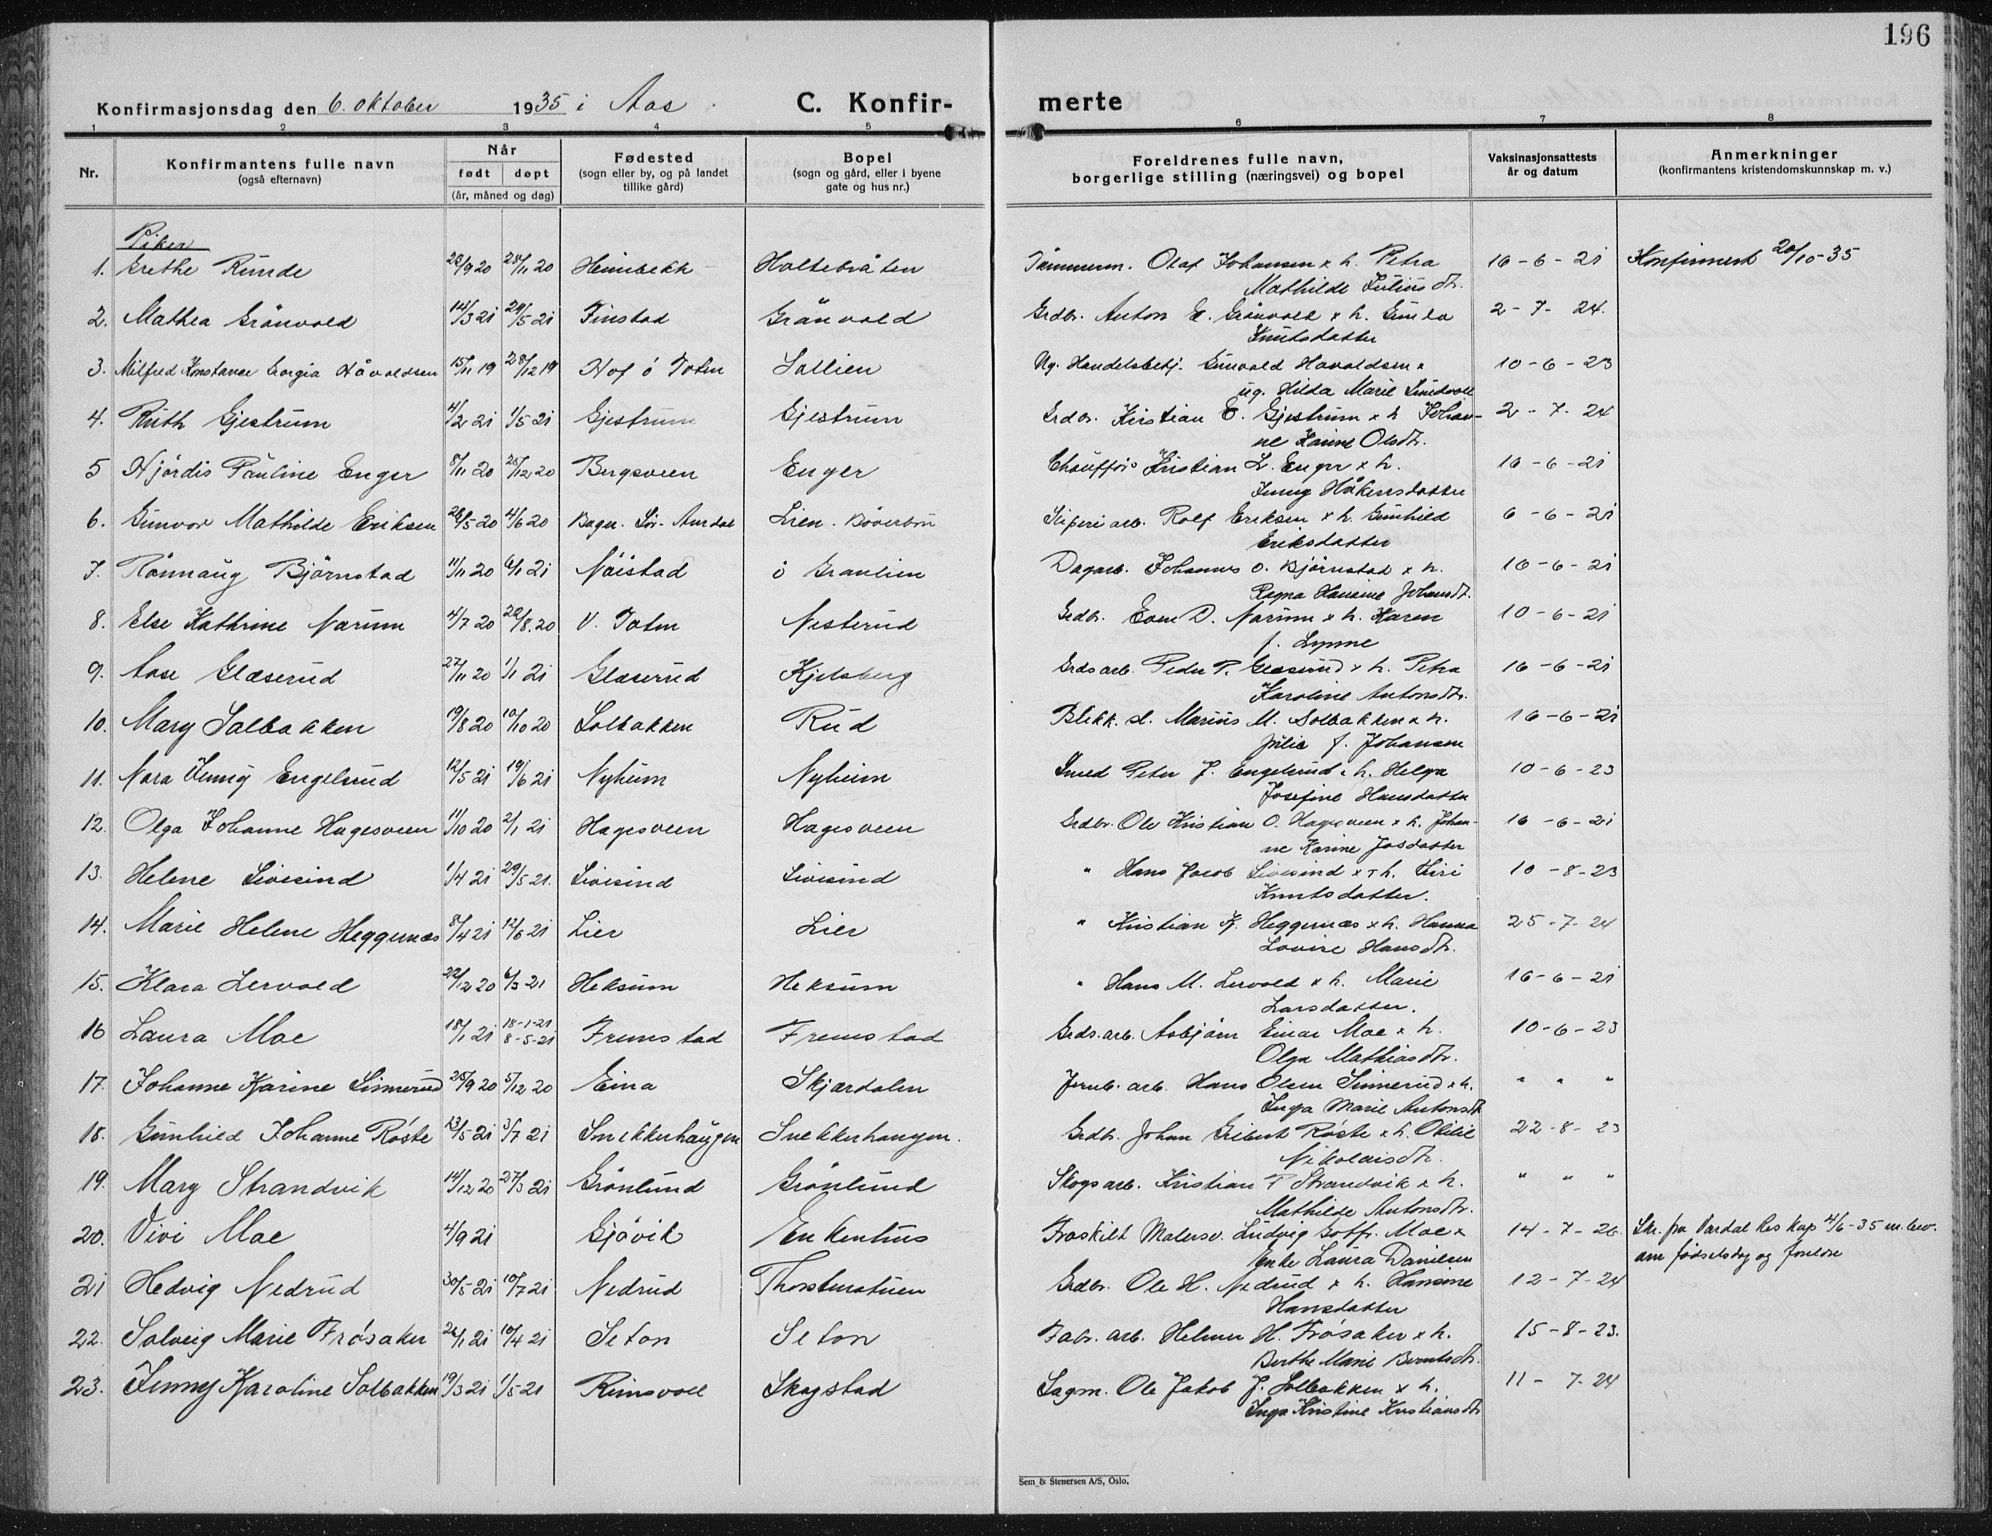 196
Konfirmasjonsdag den 6. oktober 1935 i Aas. C. Konfir-merte
1 2 3 4 5 6 7 8
Nr. Konfirmantens fulle navn (også efternavn) Når født døpt (år, måned og dag) Fødested (sogn eller by, og på landet tillike gård) Bopel (sogn og gård, eller i byene gate og hus nr.) Foreldrenes fulle navn, borgerlige stilling (næringsvei) og bopel Vaksinasjonsattests år og datum Anmerkninger (konfirmantens kristendomskunnskap m. v.)
Piker
1. Grethe Runde 20 20 Heimbekk Holtebråten Tømmerm. Olaf Johansen x h. Petra 16-6-21 Konfirmert 20/10-35
Mathilde Juliusdtr.
2. Mathea Grönvold 14/3 21 29/5 21 Finstad Grönvold Grdbr. Anton E. Grönvold x h. 2-7-24.
Knutsdatter
3. Milfred Konstanse Georgia Håvoldsen 15/11 19 28/12 19 Hof ö Toten Sollien Ug. Handelsbetj. Gunvald Havoldsen x 10-6-23
ug. Hilda Marie Lundvoll
4. Ruth Gjestrum 4/2 21 1/5 21 Gjestrum Gjestrum Grdbr. Kristian E. Gjestrum x h. Johan- 2-7-24
ne Karine Olsdtr.
5 Hjördis Pauline Enger 8/11 20 26/12 20 Bergsveen Enger Chaufför Kristian L. Enger x h. 16-6-21
Jenny Håkensdatter
6. Gunvor Mathilde Eriksen 26/5 20 4/6 20 Bagn. Sör-Aurdal Lien. Böverbru Sliperiarb. Rolf Eriksen x h. Gunhild 6-6-21
Eriksdatter
7. Rönnaug Björnstad 11/11 20 6/1 21 Nöistad ö Granlien Dagarb. Johannes O. Björnstad x h. 16-6-21
Ragna Hansine Johansdt.
8. Else Kathrine Narum 4/7 20 22/8.20 V. Toten Nesterud Grdbr. Even D. Narum x h. Karen 10-6-21
f. Lynne
9. Aase Glæserud 27/11 20 1/1 21 Glæserud Kjelsberg Grdsarb. Peder P. Glæserud x h. Petra 16-6-21
Karoline Antonsdtr.
10. Mary Solbakken 19/8 20 10/10 20 Solbakken Rud Blikk.sl. Marius M. Solbakken x h. 16-6-21
Julie f. Johansen
11. Nora Jenny Engelsrud 12/5 21 19/6 21 Nyheim Nyheim Smed Peter J. Engelsrud x h. Helga 10-6-23
Josefine Hansdatter
12. Olga Johanne Hagesveen 11/10 20 2/1 21 Hagesveen Hagesveen Grdbr. Ole Kristian O. Hagesveen x h. Johan- 16-6-21
ne Karine Josdatter
13. Helene Sivesind 1/4 21 29/5 21. Sivesind Sivesind " Hans Jacob Sivesind x h. Siri 10-8-23
Knutsdatter.
14. Marie Helene Heggernæs 8/4 21 12/6 21 Lier Lier " Kristian K. Heggernæs x h. Hanna 25-7-24
Lovise Hansdtr.
15. Klara Lervold 22/12 20 6/3 21 Heksum Heksum " Hans M. Lervold x h. Marie 16-6-21
Larsdatter.
16 Laura Moe 18/1 21 18-1-21 Fremstad Fremstad Grds.arb. Asbjörn Einar Moe x h. 10-6-23
8-5-21 Olga Mathiasdtr.
17. Johanne Karine Sinnerud 25/9 20 5/12 20 Eina Skjærdalen Jernb. arb. Hans Olsen Sinnerud x h. " " "
Inga Marie Antonsdt
18. Gunhild Johanne Röste 23/5 21 3/7 21 Snekkerhaugen Snekkerhaugen. Grdbr. Johan Gilbert Röste x h. Otilie 22-8-23
Nikolaisdtr.
19. Mary Strandvik 14/12 20 27/3 21 Grönlund Grönlund Skogsarb. Kristian P. Strandvik x h. " " "
Mathilde Antonsdtr.
20. Vivi Moe 4/9 21 Gjövik Enkenhus Fraskilt Malersv. Ludvig Gotfr. Moe x 14-7-26 Skr. fra Vardal Res kap 4/6-35 m. bev.
Enke Laura Danielsen om födselsdag og foreldre
21 Hedvig Nedrud 30/5-21 10/7 21 Nedrud Thorstenstuen Grdbr. Ole H. Nedrud x h. Hansine 12-7-24
Hansdatter
22. Solveig Marie Frösaker 26/1 21 10/4 21 Seton Seton Fabr. arb. Helmer H. Frösaker x h. 15-8-23.
Berthe Marie Berntsdtr.
23. Jenny Karoline Solbakken 19/3 21 1/5 21 Rimsvoll Skogstad Sagm. Ole Jakob J. Solbakken x h. 11-7-24
Inga Kristine Kristiansdtr
Sem & Stenersen A/S, Oslo.